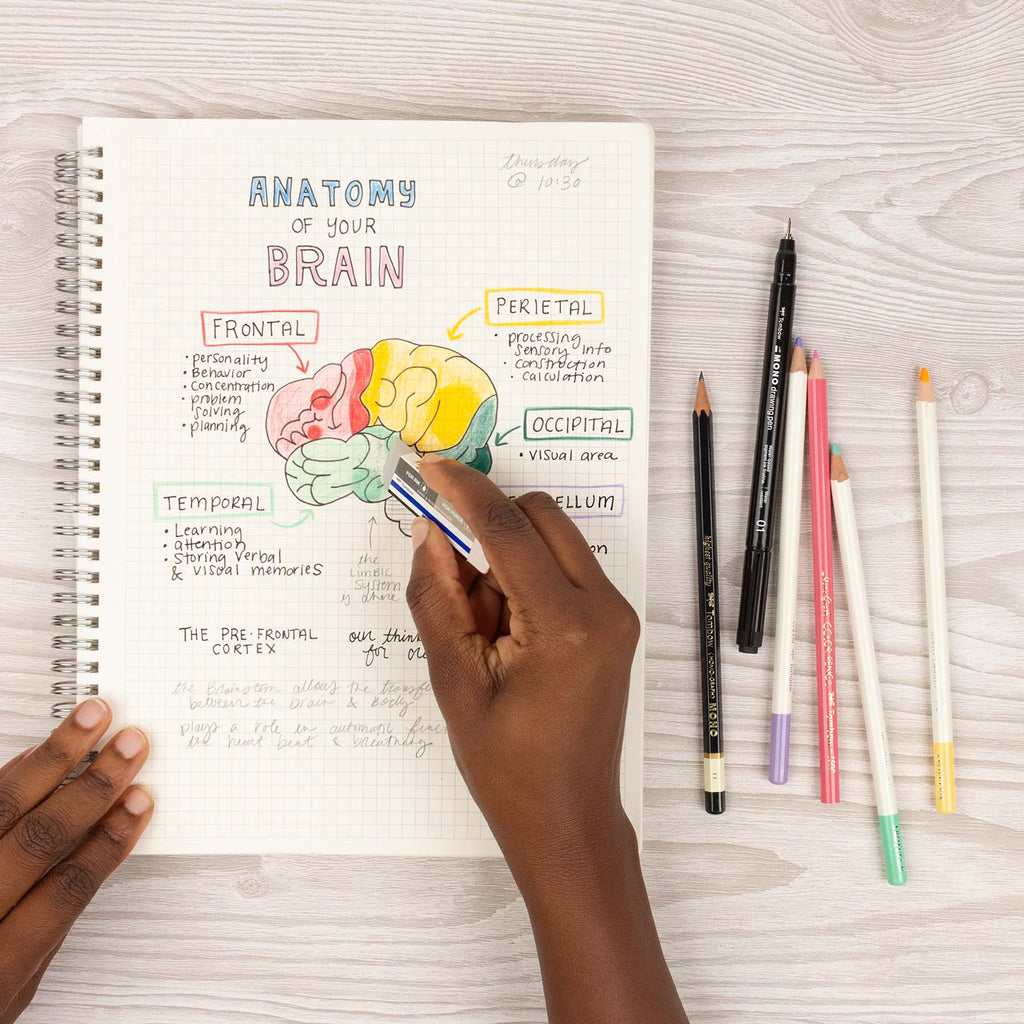 thursday
@ 10:30
ANATOMY
OF YOUR
BRAIN
FRONTAL
• personality
• Behavior
• Concentration
• problem
solving
• planning
PERIETAL
• processing
sensory info
• construction
• calculation
OCCIPITAL
• visual area
TEMPORAL
• Learning
• attention
• Storing verbal
& visual memories
the
Limbic
System
is above
THE PRE-FRONTAL
CORTEX
our
for
the Brainstem allows the
between the brain & Body
plays a role in automatic
the heart beat & breathing
Tombow MONO drawing pen
01
highest quality Tombow MONO